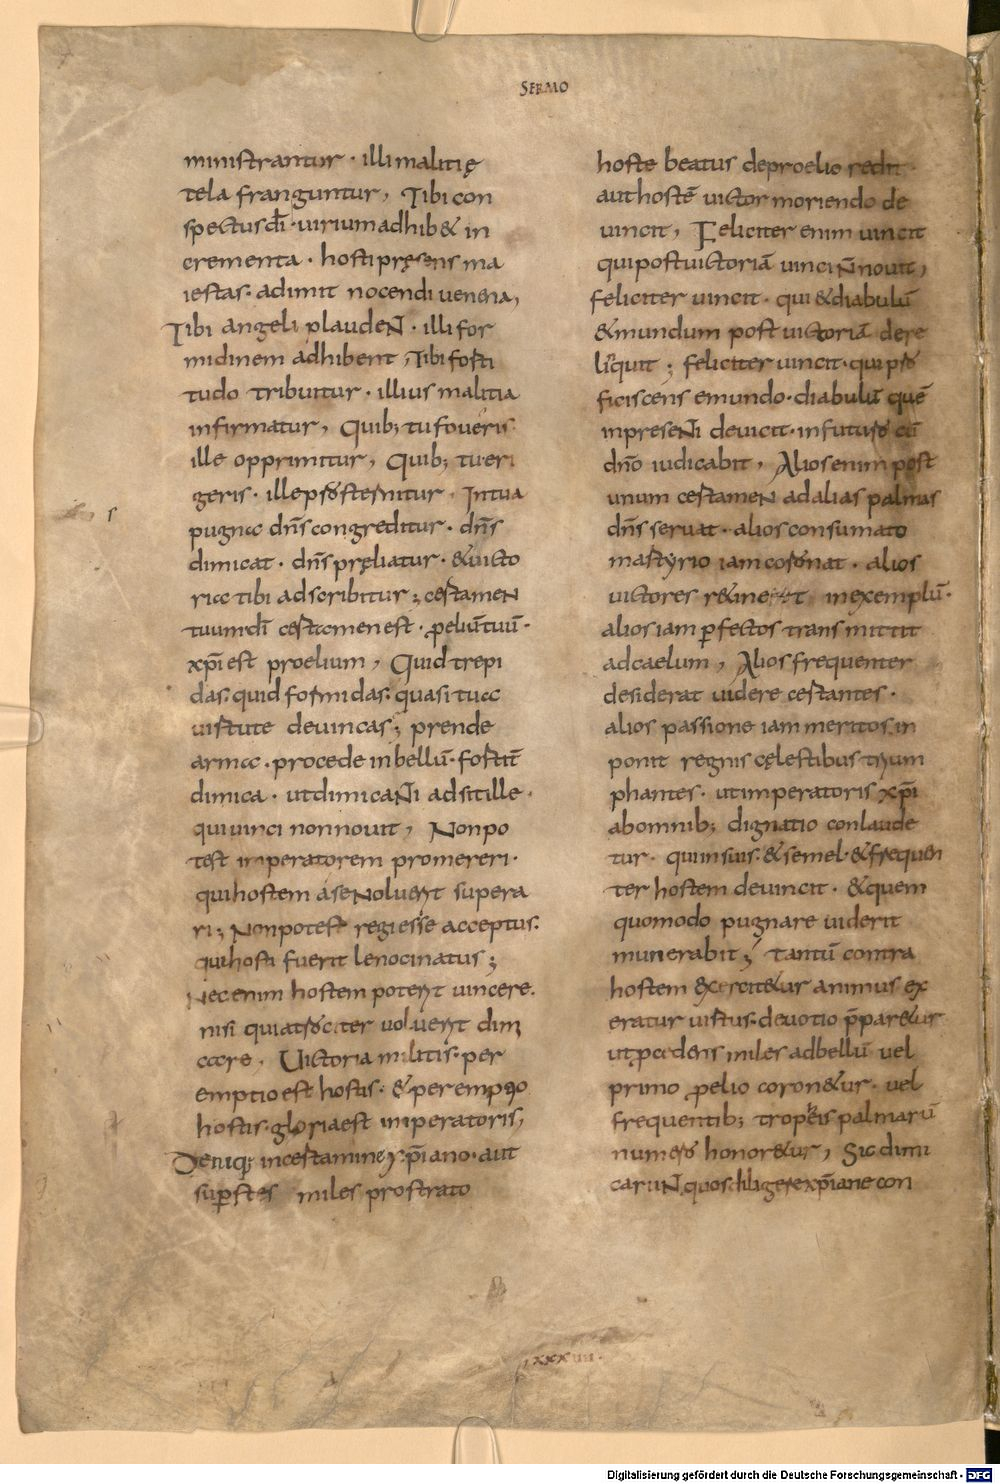 SERMO
ministrantur · illi malitię
tela franguntur, Tibi con
spectus dī · uirium adhib& in
crementa · hosti pręsens ma
iestas · adimit nocendi uenena,
Tibi angeli plaudeN̄ · illi for
midinem adhibent, Tibi forti
tudo tribuitur · illius malitia
infirmatur, Quib; tu foueris
ille opprimitur, Quib; tu eri
geris · ille prosternitur · In tua
pugna dn̄s congreditur · dn̄s
dimicat · dn̄s pręliatur · & uicto
ria tibi adscribitur; certameN
tuum dī certamen est · p̄eliū tuū ·
xp̄i est proelium, Quid trepi
das · quid formidas · quasi tua
uirtute deuincas; prende
arma · procede in bellū · fortit̄
dimica · ut dimicaN̄i adsit ille ·
qui uinci non nouit, Non po
test imperatorem promereri ·
qui hostem a se Noluerit supera
ri; Non potest regi esse acceptus ·
qui hosti fuerit lenocinatus;
Nec enim hostem poterit uincere ·
nisi qui atrociter uoluerit dim
care, Uictoria militis · per
emptio est hostis · & peremptio
hostis · gloria est imperatoris,
Deniq; in certamine xp̄iano · aut
sup̄stes miles prostrato
hoste beatus de proelio redit
aut hostē uictor moriendo de
uincit, Feliciter enim uincit
qui post uictoriā uinci N̄ nouit,
feliciter uincit · qui & diabulū
& mundum post uictoriā dere
liquit; feliciter uincit · qui pro
ficiscens e mundo · diabulū quē
in preseN̄i deuicit · in futuro cū
dn̄o iudicabit, Alios enim post
unum certameN ad alias palmas
dn̄s seruat · alios consumato
martyrio iam coronat · alios
uictores r&ine t in exemplū ·
alios iam p̄fectos transmittit
ad caelum, Alios frequenter
desiderat uidere certantes ·
alios passione iam meritos in
ponit regnis cęlestibus tryum
phantes · ut imperatoris xp̄i
ab omnib; dignatio conlaude
tur · qui in suis · & semel · & frequen
ter hostem deuincit · & quem
quomodo pugnare uiderit
munerabit; tantū contra
hostem exercit&ur animus ex
eratur uirtus · deuotio p̄par&ur
ut p̄cedens miles ad bellū uel
primo p̄elio coron&ur · uel
frequentib; tropeis palmarū
numero honor&ur, Sic dimi
caruN̄ quos diligere xp̄iane con
s
LXXXIIII ·
Digitalisierung gefördert durch die Deutsche Forschungsgemeinschaft - DFG